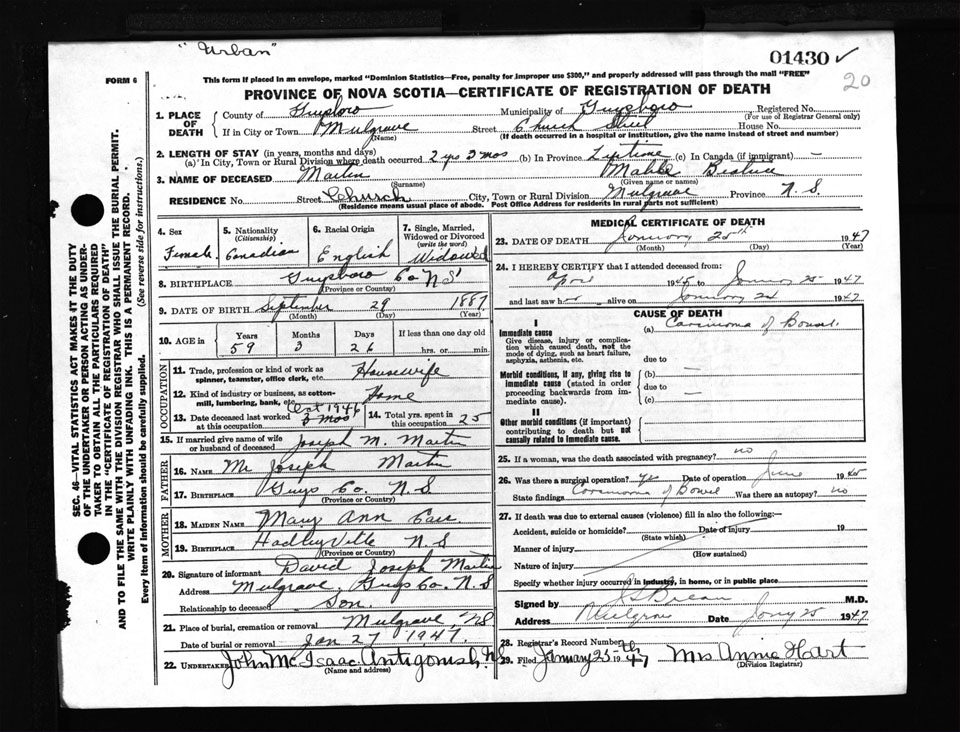 "Urban"
01430 ✓
20
FORM 6
This form if placed in an envelope, marked "Dominion Statistics—Free, penalty for improper use $300," and properly addressed will pass through the mail "FREE"
PROVINCE OF NOVA SCOTIA—CERTIFICATE OF REGISTRATION OF DEATH
SEC. 46—VITAL STATISTICS ACT MAKES IT THE DUTY
OF THE UNDERTAKER OR PERSON ACTING AS UNDER-
TAKER TO OBTAIN ALL THE PARTICULARS REQUIRED
IN THE "CERTIFICATE OF REGISTRATION OF DEATH"
AND TO FILE THE SAME WITH THE DIVISION REGISTRAR WHO SHALL ISSUE THE BURIAL PERMIT.
WRITE PLAINLY WITH UNFADING INK. THIS IS A PERMANENT RECORD.
Every item of information should be carefully supplied. (See reverse side for instructions.)
1. PLACE OF DEATH
County of Guysboro Municipality of Guysboro Registered No.
(For use of Registrar General only)
If in City or Town Mulgrave Street Church Street House No.
(Name) (If death occurred in a hospital or institution, give the name instead of street and number)
2. LENGTH OF STAY (in years, months and days)
(a) In City, Town or Rural Division where death occurred 2 yrs 3 mos (b) In Province Lifetime (c) In Canada (if immigrant) —
3. NAME OF DECEASED Martin Beatrice
(Surname) (Given name or names)
RESIDENCE No. Street Church City, Town or Rural Division Mulgrave Province N. S.
(Residence means usual place of abode. Post Office Address for residents in rural parts not sufficient)
4. Sex 5. Nationality (Citizenship) 6. Racial Origin 7. Single, Married, Widowed or Divorced (write the word)
Female Canadian English Widowed
8. BIRTHPLACE Guysboro Co NS
(Province or Country)
9. DATE OF BIRTH September 29 1887
(Month) (Day) (Year)
10. AGE in Years Months Days If less than one day old
59 3 26 hrs. or min.
OCCUPATION
11. Trade, profession or kind of work as spinner, teamster, office clerk, etc. Housewife
12. Kind of industry or business, as cotton-mill, lumbering, bank, etc. Home
13. Date deceased last worked at this occupation Oct 1946 3 mos 14. Total yrs. spent in this occupation 25
15. If married give name of wife or husband of deceased Joseph M. Martin
FATHER
16. NAME Mr Joseph Martin
17. BIRTHPLACE Guys Co. N. S
(Province or Country)
MOTHER
18. MAIDEN NAME Mary Ann
19. BIRTHPLACE Hadleyville N S
(Province or Country)
20. Signature of informant David Joseph Martin
Address Mulgrave, Guys Co. N. S
Relationship to deceased Son.
21. Place of burial, cremation or removal Mulgrave, NS
Date of burial or removal Jan 27 1947.
22. UNDERTAKER John McIsaac Antigonish N.S.
(Name and address)
MEDICAL CERTIFICATE OF DEATH
23. DATE OF DEATH January 25th 1947
(Month) (Day) (Year)
24. I HEREBY CERTIFY that I attended deceased from:
April 194 to January 25 1947
and last saw her alive on January 24 1947
CAUSE OF DEATH
I
Immediate cause (a) Carcinoma of Bowel.
Give disease, injury or complication which caused death, not the mode of dying, such as heart failure, asphyxia, asthenia, etc. due to
Morbid conditions, if any, giving rise to immediate cause (stated in order proceeding backwards from immediate cause). (b) —
due to
(c) —
II
Other morbid conditions (if important) contributing to death but not causally related to immediate cause.
25. If a woman, was the death associated with pregnancy? no
26. Was there a surgical operation? yes Date of operation June 19
State findings Carcinoma of Bowel Was there an autopsy? no
27. If death was due to external causes (violence) fill in also the following:—
Accident, suicide or homicide? Date of injury 19
(State which)
Manner of injury
(How sustained)
Nature of injury
Specify whether injury occurred in industry, in home, or in public place
Signed by M.D.
Address Mulgrave Date Jany 25 1947
28. Registrar's Record Number
29. Filed January 25th 1947 Mrs Annie Hart
(Division Registrar)